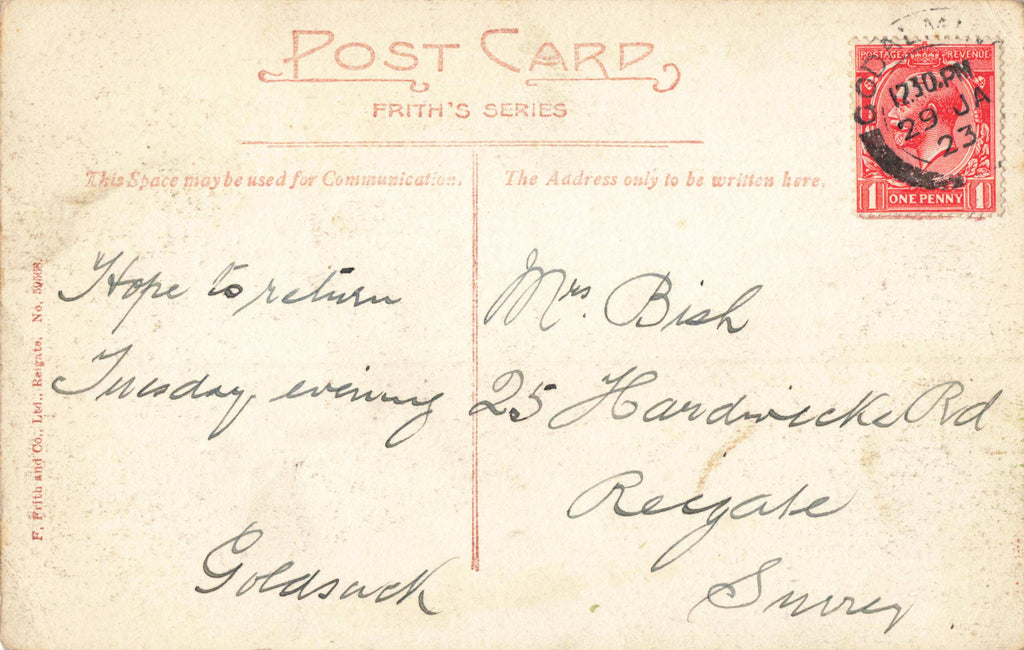 POST CARD
FRITH'S SERIES
This Space may be used for Communication.
The Address only to be written here.
Hope to return
Tuesday evening
Goldsack
Mrs. Bish
25 Hardwicke Rd
Reigate
Surrey
POSTAGE REVENUE
1 ONE PENNY 1
GODALMI
12.30.PM
29 JA
23
F. Frith and Co., Ltd., Reigate. No.